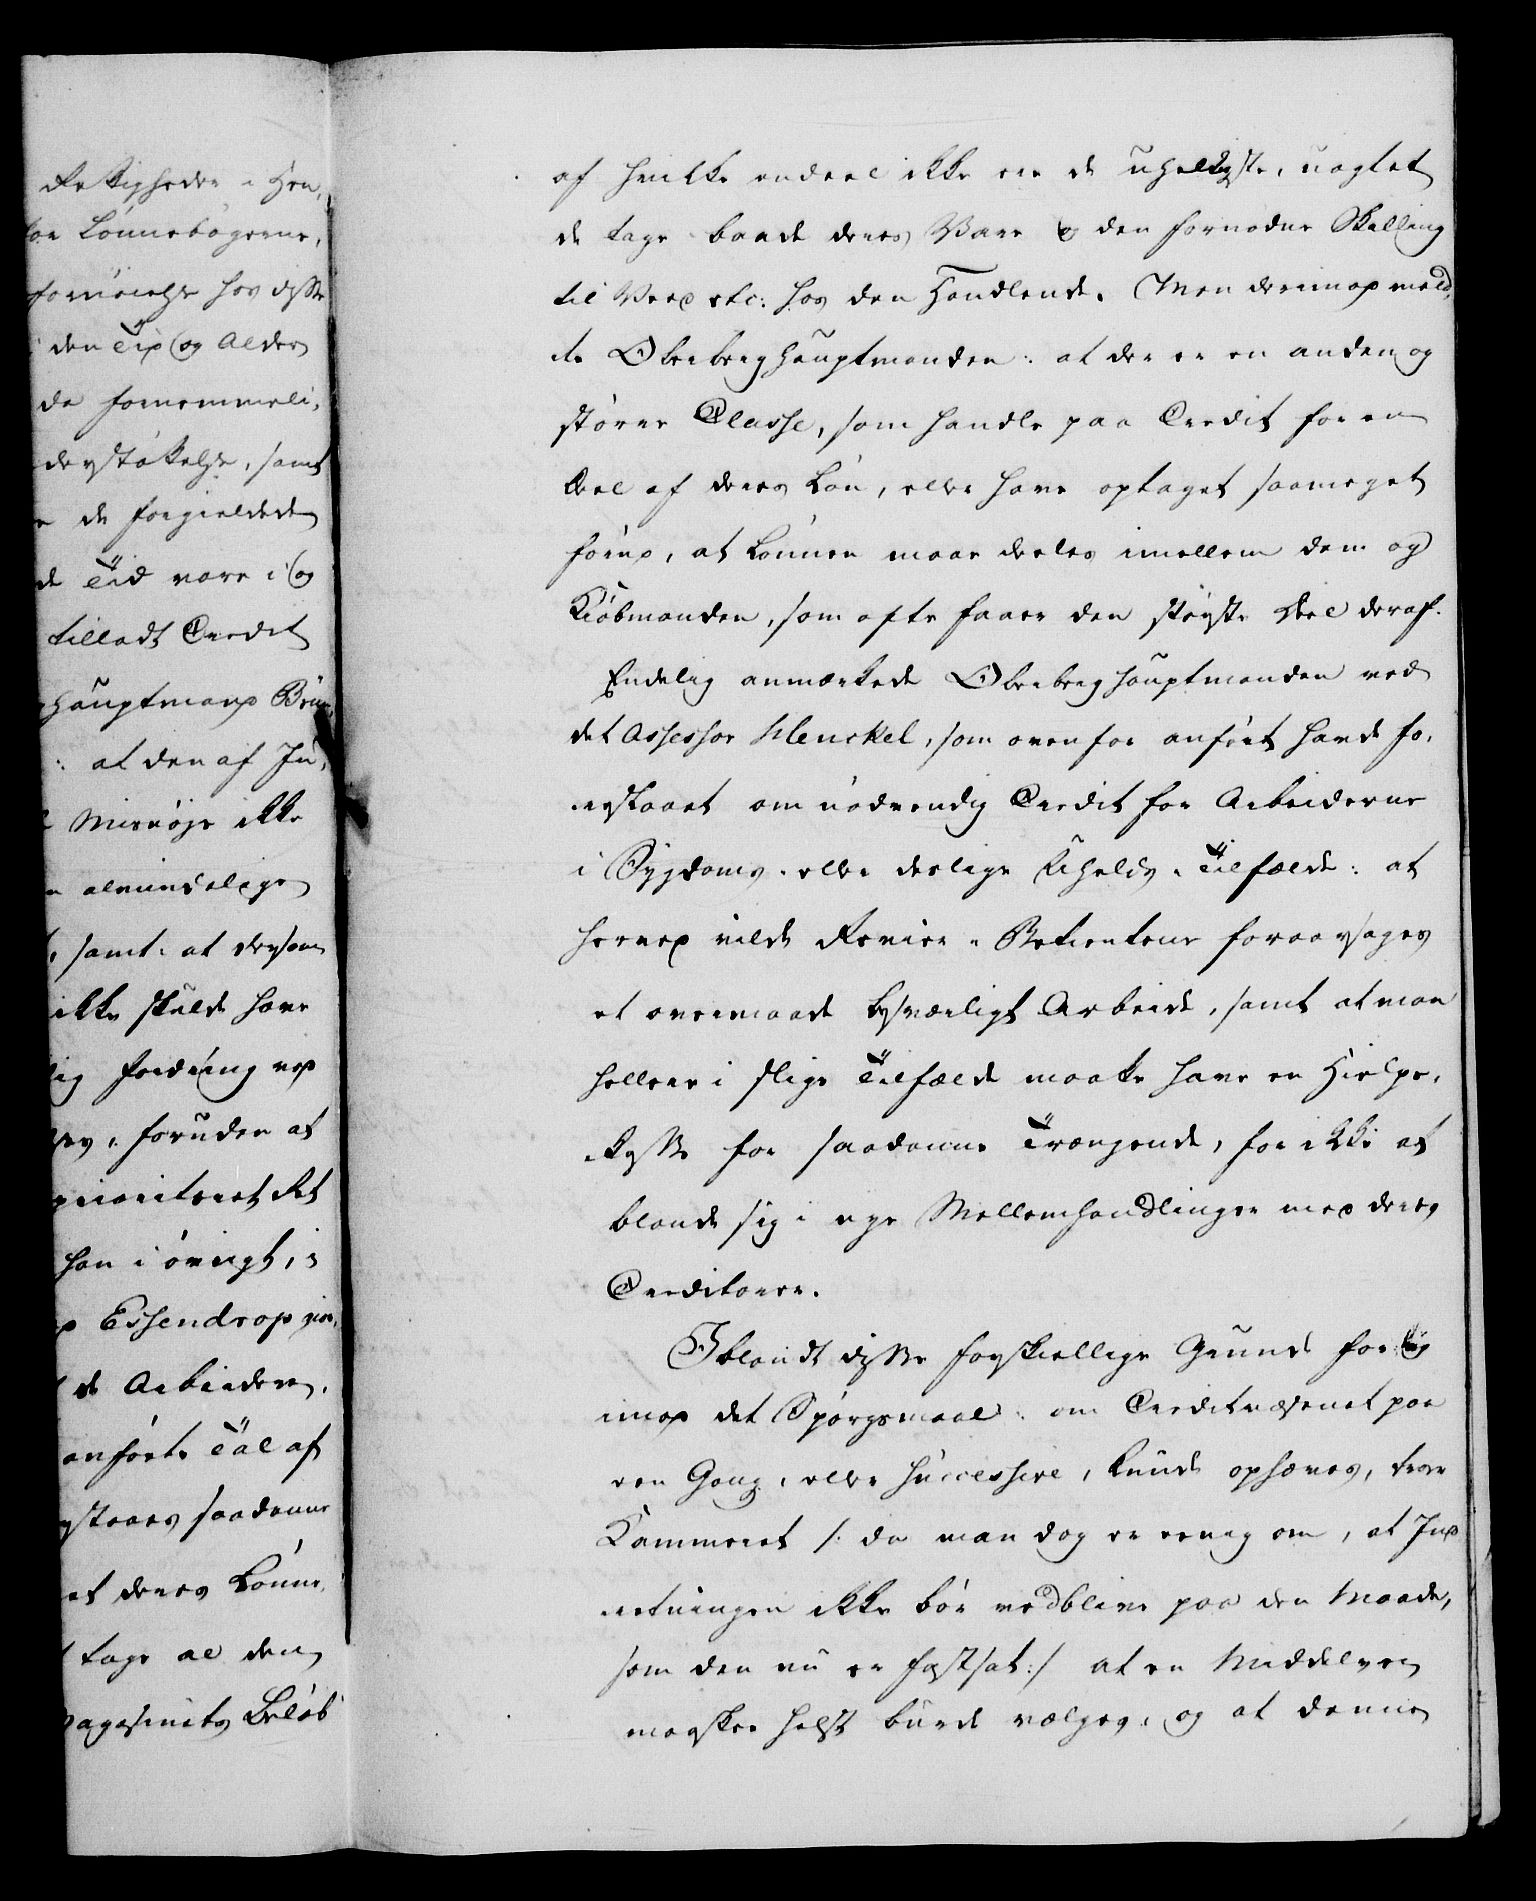 Rettigheder i Hen,
Lønnebøgerne,
fornøielse hos disse
den Tid og Alder
da fornemmeli,
derstøttelse, samt
de forgieldede
de Tid vare i og
tilladt Credit
hauptmand Brün,
: at den af Ju,
Misnøje ikke
almindelige
samt: at dersom
ikke skulde have
lig fordring ved
foruden at
prioriteret Ret
han i øvrigt, i
Essendrop giør,
de Arbeidere,
anførte Tal af
staaes saadanne
at deres Lønne,
tage al den
Magasinets Beløb
af hvilke endeel ikke ere de uheldigste, uagtet
de tage baade deres Vare og den fornødne Skilling
til Veed etc: hos den Handlende. Men derimod meld,
te Oberberghauptmanden: at der er en anden og
større Classe, som handle paa Credit for en
Deel af deres Løn, eller have optaget saameget
forud, at Lønnen maae deeles imellem dem og
Kiøbmanden, som ofte faaer den største Deel deraf.
Endelig anmærkede Oberberghauptmanden ved
det Assessor Henckel, som ovenfor anført havde fo,
reslaaet om nødvendig Credit for Arbeiderne
i Sygdoms- eller deslige Uhelds-Tilfælde: at
herved vilde Revier-Betienterne foraarsages
et overmaade besværligt Arbeide, samt at man
hellere i slige Tilfælde maatte have en Hielpe,
Casse for saadanne Trængende, for ikke at
blande sig i nye Mellemhandlinger med deres
Creditorer.
Iblandt disse forskiellige Grunde for og
imod det Spørgsmaal: om Creditvæsenet paa
een Gang, eller successive, kunde ophæves, troer
Kammeret /: da man dog er eenig om, at Ind
retningen ikke bør vedblive paa den Maade,
som den nu er fastsat :/ at en Middelvei
maaskee helst burde vælges, og at denne